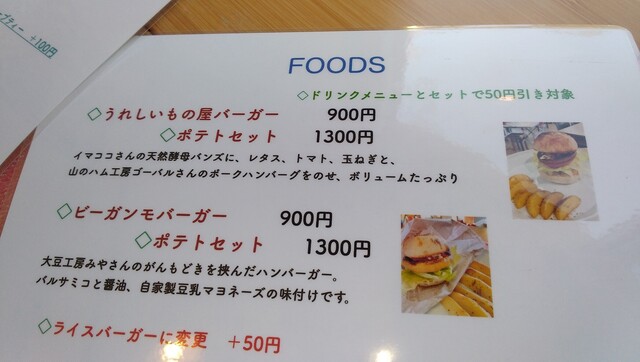 プティー +100円
FOODS
◇ドリンクメニューとセットで50円引き対象
◇うれしいもの屋バーガー 900円
◇ポテトセット 1300円
イマココさんの天然酵母バンズに、レタス、トマト、玉ねぎと、
山のハム工房ゴーバルさんのポークハンバーグをのせ、ボリュームたっぷり
◇ビーガンモバーガー 900円
◇ポテトセット 1300円
大豆工房みやさんのがんもどきを挟んだハンバーガー。
バルサミコと醤油、自家製豆乳マヨネーズの味付けです。
◇ライスバーガーに変更 +50円